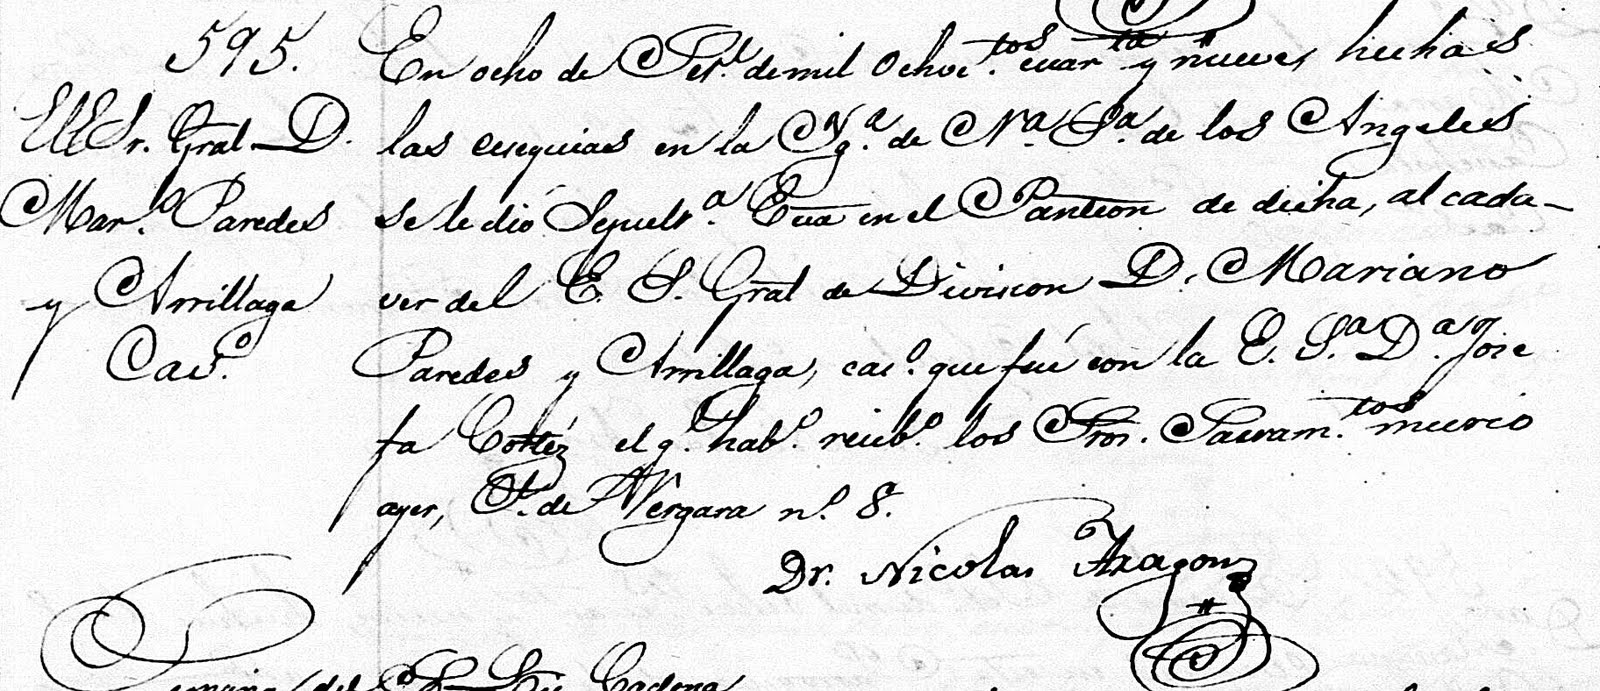 595.
El E. Sr. Gral. D.
Mar.º Paredes
y Arrillaga
Cas.º
En ocho de Set.e de mil ochoc.tos cuar.ta y nueve, hechas
las exsequias en la Yg.ª de N.ª S.ª de los Angeles
se le dió Sepult.ª Ecca en el Panteon de dicha, al cada-
ver del E. S. Gral de Division D. Mariano
Paredes y Arrillaga, cas.º que fué con la E. S.ª D.ª Jose
fa Cortéz el q.e hab.º recib.º los Stos. Sacram.tos murió
ayer, C.e de Vergara n.º 8.
Dr. Nicolas Aragon